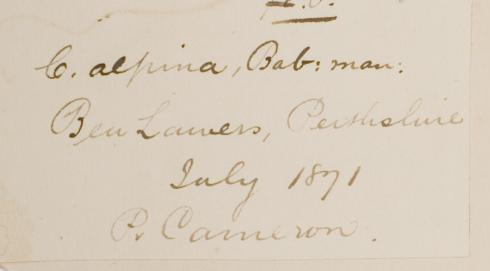 C. alpina, Bab: man:
Ben Lawers, Perthshire
July 1871
P. Cameron.